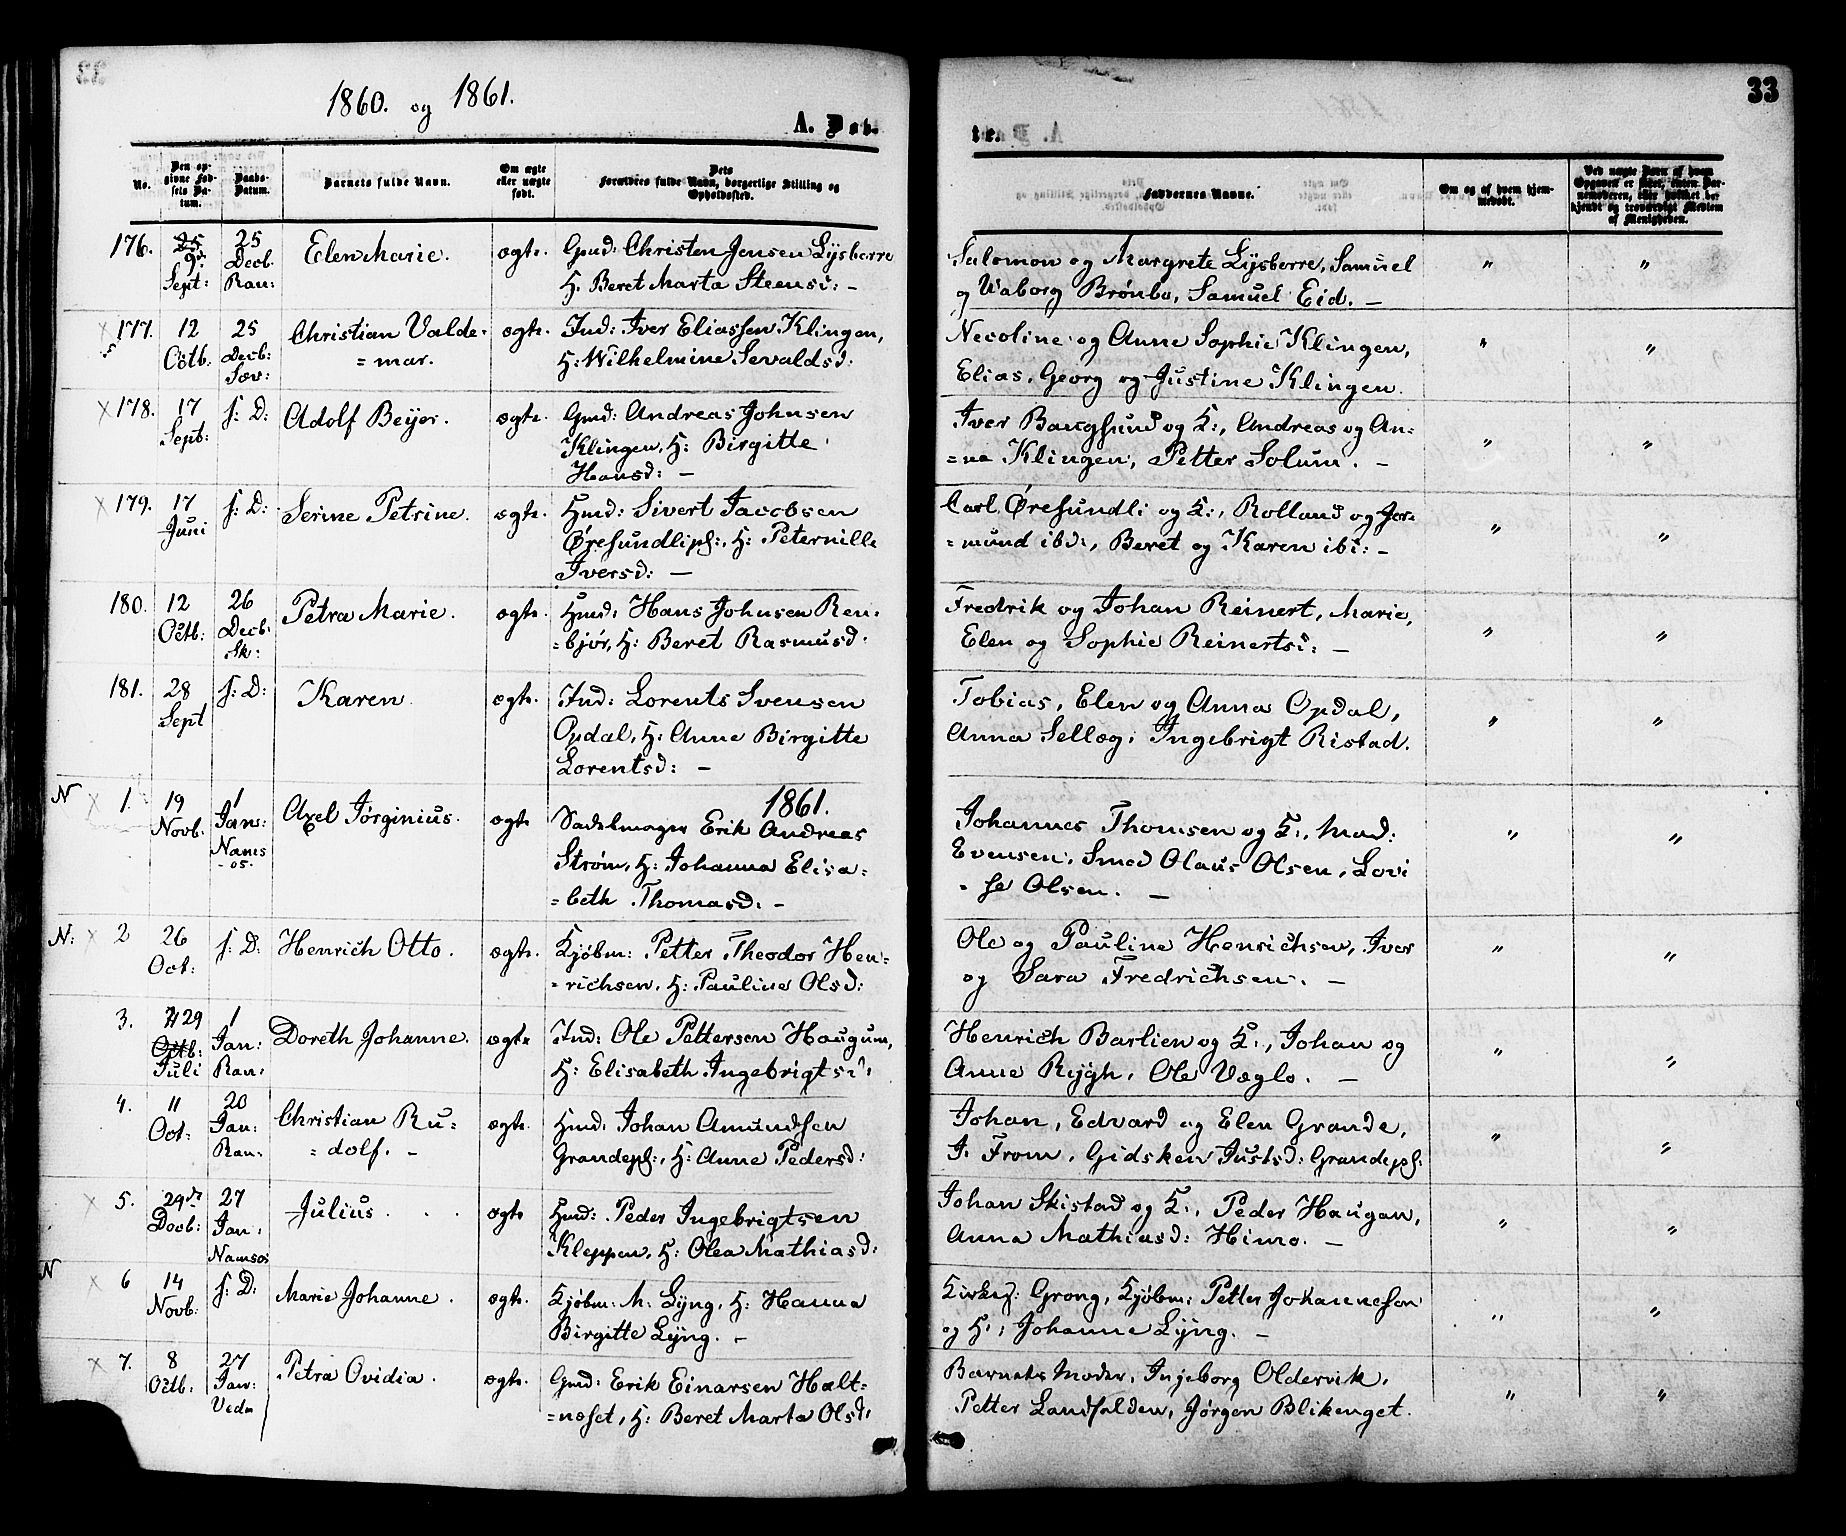 33
1860. og 1861.
A. Døb-
te.
No.
Den opgivne Fødsels Datum.
Daabs-Datum.
Barnets fulde Navn.
Om ægte eller uægte født.
Dets Forældres fulde Navn, borgerlige Stilling og Opholdssted.
Faddernes Navne.
Om og af hvem hjemmedøbt.
176. 25 9de Sept: 25 Decb. Ran: Elen Marie. ægte. Gmd: Christen Jensen Lysberre
H. Beret Marta Steensd: –
Salomon og Margrete Lysberre, Samuel
og Valborg Brønbo, Samuel Eid. –
177. 12 Octb. 25 Decb: Sæv: Christian Valde-
= mar. ægte. Ind: Iver Eliassen Klingen,
H: Wilhelmine Sevaldsd:
Necoline og Anne Sophie Klingen,
Elias, Georg og Justine Klingen.
178. 17 Sept: s: D: Adolf Beyer. ægte. Gmd: Andreas Johnsen
Klingen, H: Birgitte
Hansd: –
Iver Bangsund og K:, Andreas og An=
=ne Klingen, Petter Solum. –
179. 17 Juni s: D: Serine Petrine. ægte. Hmd: Sivert Jacobsen
Øresundlipl:, H: Peternille
Iversd: –
Carl Øresundli og K:, Rolland og Jør=
=mund ibd:, Beret og Karen ibi: –
180. 12 Octb: 26 Decb: Sk: Petra Marie. ægte. Hmd: Hans Johnsen Ren=
=bjør, H: Beret Rasmusd:
Fredrik og Johan Reinert, Marie,
Elen og Sophie Reinertsd: –
181. 28 Sept s: D: Karen. ægte. Ind: Lorents Svensen
Opdal, H: Anne Birgitte
Lorentsd: –
Tobias, Elen og Anna Opdal,
Anna Selleg, Ingebrigt Ristad.
1861.
N 1. 19 Novb. 1 Jan: Nams-os. Axel Jørginius. ægte Sadelmager Erik Andreas
Strøm, H: Johanna Elisa=
=beth Thomasd: –
Johannes Thomsen og K:, Mad:
Evensen, Smed Olaus Olsen, Lovi
= se Olsen. –
N: 2 26 Oct: s: D: Henrich Otto. ægte. Kjøbm: Petter Theodor Hen=
=richsen, H: Pauline Olsd:
Ole og Pauline Henrichsen, Iver
og Sara Fredrichsen. –
3. 29 Octb: Juli 1 Jan: Ran: Doreth Johanne. ægte Ind: Ole Pettersen Haugum,
H: Elisabeth Ingebrigtsd:
Henrich Barlien og K:, Johan og
Anne Rygh, Ole Væglo. –
4. 11 Oct: 20 Jan: Ran: Christian Ru=
= dolf. – ægte. Hmd: Johan Amundsen
Grandepl:, H: Anne Pedersd:
Johan, Edvard og Elen Grande,
J. From, Gidsken Justsd: Grandepl:
5. 29de Decb: 27 Jan: Namsos Julius. ægte Hmd: Peder Ingebrigtsen
Kleppen, H: Olea Mathiasd:
Johan Skistad og K:, Peder Haugan,
Anna Mathiasd: Himo. –
N 6 14 Novb: s: D: Marie Johanne. ægte. Kjøbm: M: Lyng, H: Hanna
Birgitte Lyng. –
Kirkes: Grong, Kjøbm: Petter Johannesson
og H:, Johanne Lyng. –
7. 8 Octb: 27 Jan: Vedø Petra Ovidia. ægte. Gmd: Erik Einarsen Halt=
=neset, H: Beret Marta Olsd:
Barnets Moder, Injeborg Oldervik,
Petter Landfalden, Jørgen Blikenget.